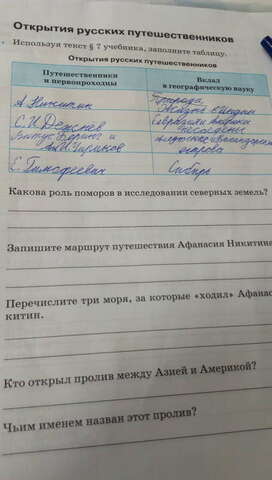 Открытия русских путешественников
Используя текст § 7 учебника, заполните таблицу.
Открытия русских путешественников
Путешественники
и первопроходцы
Вклад
в географическую науку
А. Никитин
Природа
Индии
С. И. Дежнев
Евразии
Витус Беринг и
А. И. Чириков
острова
Е. Тимофеевич
Сибирь
Какова роль поморов в исследовании северных земель?
Запишите маршрут путешествия Афанасия Никитина
Перечислите три моря, за которые «ходил» Афанас
китин.
Кто открыл пролив между Азией и Америкой?
Чьим именем назван этот пролив?